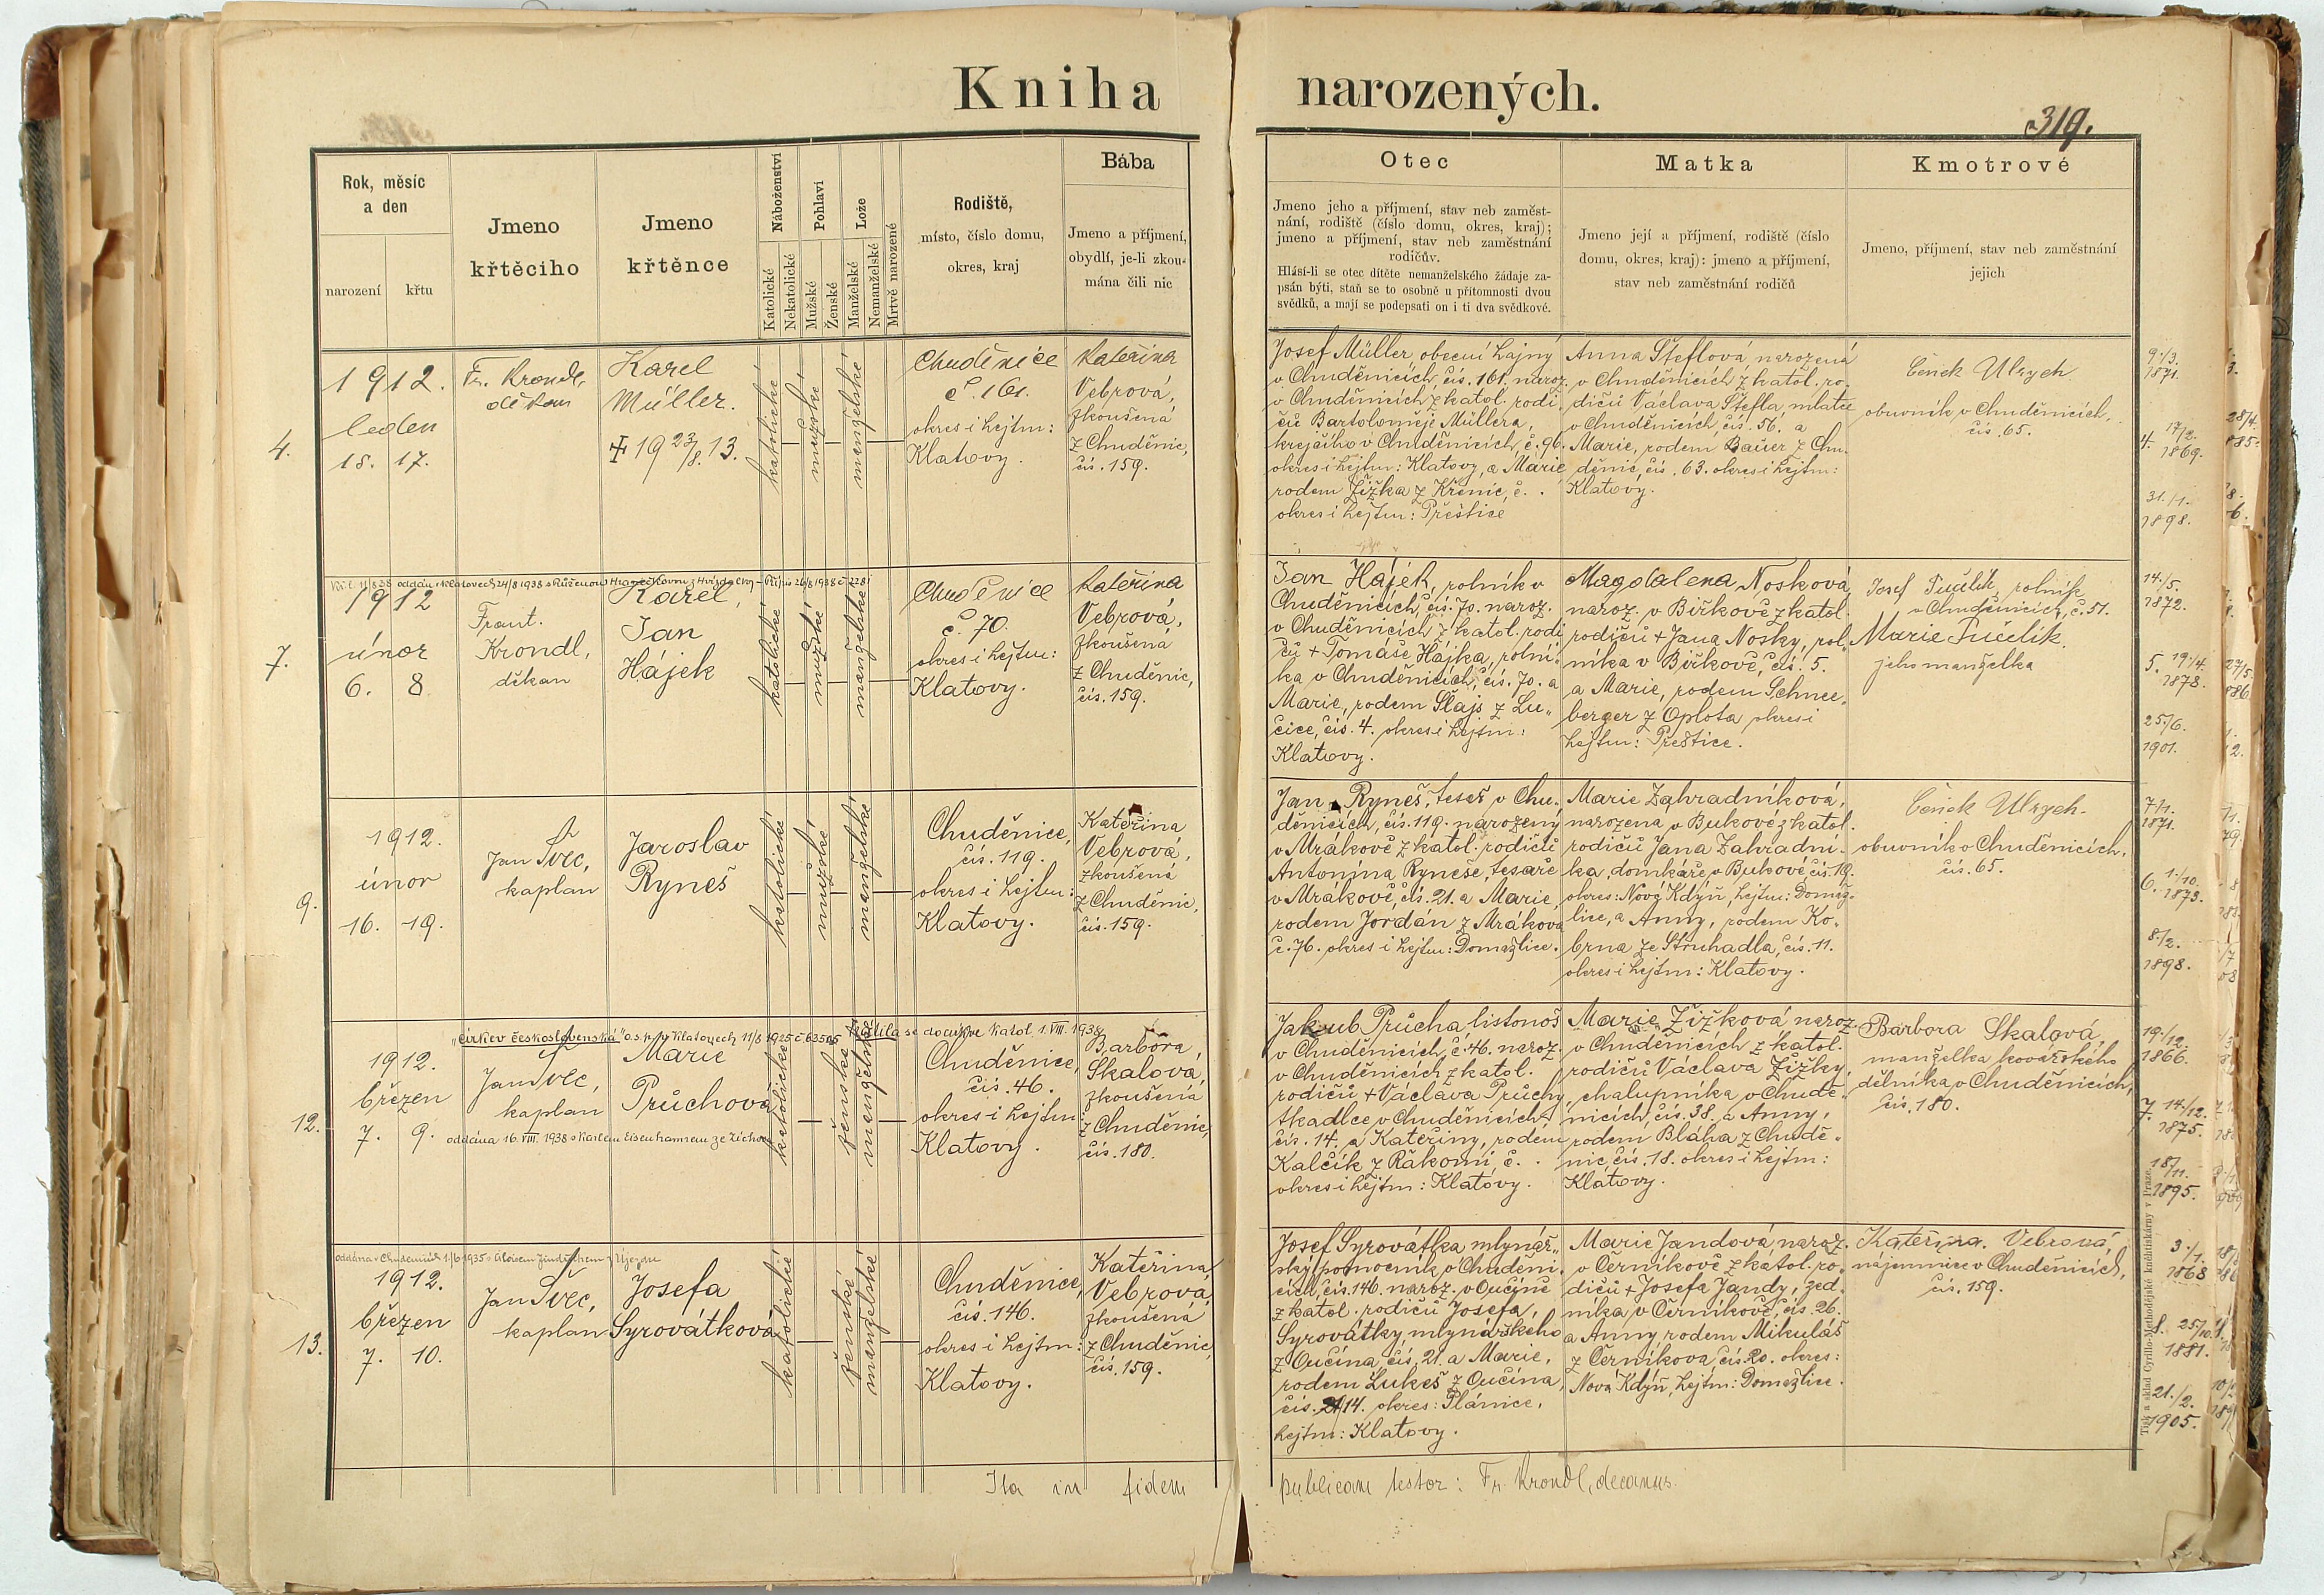 Kniha narozených.
319.
Rok, měsíc
a den
narození
křtu
Jmeno
křtěcího
Jmeno
křtěnce
Náboženství
Katolické
Nekatolické
Pohlaví
Mužské
Ženské
Lože
Manželské
Nemanželské
Mrtvě narozené
Rodiště,
místo, číslo domu,
okres, kraj
Bába
Jmeno a příjmení,
obydlí, je-li zkou-
mána čili nic
Otec
Jmeno jeho a příjmení, stav neb zaměst-
nání, rodiště (číslo domu, okres, kraj);
jmeno a příjmení, stav neb zaměstnání
rodičův.
Hlásí-li se otec dítěte nemanželského žádaje za-
psán býti, staň se to osobně u přítomnosti dvou
svědků, a mají se podepsati on i ti dva svědkové.
Matka
Jmeno její a příjmení, rodiště (číslo
domu, okres, kraj): jmeno a příjmení,
stav neb zaměstnání rodičů
Kmotrové
Jmeno, příjmení, stav neb zaměstnání
jejich
4.
1912.
leden
15. 17.
Fr. Krondl,
děkan
Karel
Müller.
✠ 19 23/8. 13.
katolické
mužské
manželské
Chuděnice
č. 161.
okres i hejtm:
Klatovy.
Kateřina
Vebrová,
zkoušená
z Chuděnic,
čís. 159.
Josef Müller, obecní hajný
v Chuděnicích, čís. 161. naroz.
v Chuděnicích z katol. rodi-
čů Bartoloměje Müllera,
krejčího v Chuděnicích, č. 96.
okres i hejtm: Klatovy, a Marie
rodem Žižka z Křenic, č. .
okres i hejtm: Přeštice
Anna Šteflová narozená
v Chuděnicích z katol. ro-
dičů Václava Štefla, mlatce
v Chuděnicích, čís. 56. a
Marie, rodem Bauer z Chu-
děnic, čís. 63. okres i hejtm:
Klatovy.
Čeněk Ulrych
obuvník v Chuděnicích,
čís. 65.
9./3.
1871.
4. 17/2.
1869.
31./1.
1898.
oddán v Klatovech 24/8 1938 s Růženou
7.
1912
únor
6. 8
Frant.
Krondl,
děkan
Karel,
Jan
Hájek
katolické
mužské
manželské
Chuděnice
č. 70.
okres i hejtm:
Klatovy.
Kateřina
Vebrová,
zkoušená
z Chuděnic,
čís. 159.
Jan Hájek, rolník v
Chuděnicích, čís. 70. naroz.
v Chuděnicích z katol. rodi
čů + Tomáše Hájka, rolní-
ka v Chuděnicích, čís. 70. a
Marie, rodem Šlajs z Lu-
čice, čís. 4. okres i hejtm:
Klatovy.
Magdalena Nosková,
naroz. v Biřkově z katol.
rodičů + Jana Nosky, rol-
níka v Biřkově, čís. 5.
a Marie, rodem Schnee-
berger z Oplota okres i
hejtm: Přeštice.
Josef Tučlík, rolník
v Chuděnicích, č. 51.
Marie Tučlík.
jeho manželka
14./5.
1872.
5. 19./4.
1878.
25./6.
1901.
9.
1912.
únor
16. 19.
Jan Švec,
kaplan
Jaroslav
Ryneš
katolické
mužské
manželské
Chuděnice,
čís. 119.
okres i hejtm:
Klatovy.
Kateřina
Vebrová,
zkoušená
z Chuděnic,
čís. 159.
Jan Ryneš, tesař v Chu-
děnicích, čís. 119. narozený
v Mrákově z katol. rodičů
Antonína Ryneše, tesaře
v Mrákově, čís. 21. a Marie,
rodem Jordán z Mrákova
č. 76. okres i hejtm: Domažlice.
Marie Zahradníková,
narozena v Bukové z katol.
rodičů Jana Zahradní-
ka, domkáře v Bukové čís. 19.
okres: Nová Kdýň, hejtm: Domaž-
lice, a Anny, rodem Ko-
brna ze Struhadla, čís. 11.
okres i hejtm: Klatovy.
Čeněk Ulrych.
obuvník v Chuděnicích,
čís. 65.
7./1.
1871.
6. 1./10.
1873.
8./2.
1898.
„Církev československá" o.s.p. v Klatovech 11/8 1925 č. 63505 vrátila se do církve katol. 1. VIII. 1938
12.
1912.
březen
7. 9.
Jan Švec,
kaplan
Marie
Průchová
oddána 16. VIII. 1938 s Karlem Eisenhamrem ze Zichova
katolické
ženské
manželské
Chuděnice,
čís. 46.
okres i hejtm
Klatovy.
Barbora
Skalová,
zkoušená
z Chuděnic,
čís. 180.
Jakub Průcha listonoš
v Chuděnicích, č. 46. naroz.
v Chuděnicích z katol.
rodičů + Václava Průchy,
tkadlce v Chuděnicích,
čís. 14. a Kateřiny, rodem
Kalčík z Řakomi, č. .
okres i hejtm: Klatovy.
Marie Žižková naroz.
v Chuděnicích z katol.
rodičů Václava Žižky,
chalupníka v Chudě-
nicích, čís. 38. a Anny,
rodem Bláha z Chudě-
nic, čís. 18. okres i hejtm:
Klatovy.
Barbora Skalová,
manželka kovářského
dělníka v Chuděnicích,
čís. 180.
19./12.
1866.
7. 14./12.
1875.
18/11.
1895.
oddána v Chudenicích 1./6 1935 s Aloisem Jindřichem z Újezdu
13.
1912.
březen
7. 10.
Jan Švec,
kaplan
Josefa
Syrovátková
katolické
ženské
manželské
Chuděnice,
čís. 146.
okres i hejtm:
Klatovy.
Kateřina
Vebrová,
zkoušená
z Chuděnic,
čís. 159.
Josef Syrovátka mlynář-
ský pomocník v Chuděni-
cích, čís. 146. naroz. v Oučíně
z katol. rodičů Josefa,
Syrovátky, mlynářského
z Oučína, čís. 21. a Marie,
rodem Lukeš z Oučína,
čís. 14. okres: Plánice,
hejtm: Klatovy.
Marie Jandová naroz.
v Černíkově z katol. ro-
dičů + Josefa Jandy, zed-
níka v Černíkově, čís. 26.
a Anny, rodem Mikuláš
z Černíkova, čís. 20. okres:
Nová Kdýň, hejtm: Domažlice.
Kateřina Vebrová,
nájemnice v Chuděnicích,
čís. 159.
3./1.
1868
8. 25/10.
1881.
21./2.
1905.
Ita in fidem publicam testor: Fr. Krondl, decanus.
Tisk a sklad Cyrillo-Methodějské knihtiskárny v Praze.